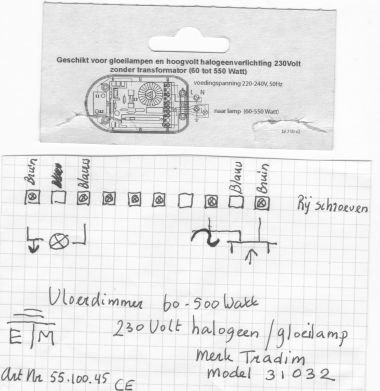 Geschikt voor gloeilampen en hoogvolt halogeenverlichting 230Volt
zonder transformator (60 tot 550 Watt)
voedingspanning 220-240V, 50Hz
L N
naar lamp (60-550 Watt)
Bruin Blauw Blauw Bruin
Rij schroeven
Vloerdimmer 60-500 Watt
230 Volt halogeen / gloeilamp
E M
merk Tradim
model 31032
Art Nr 55.100.45 CE